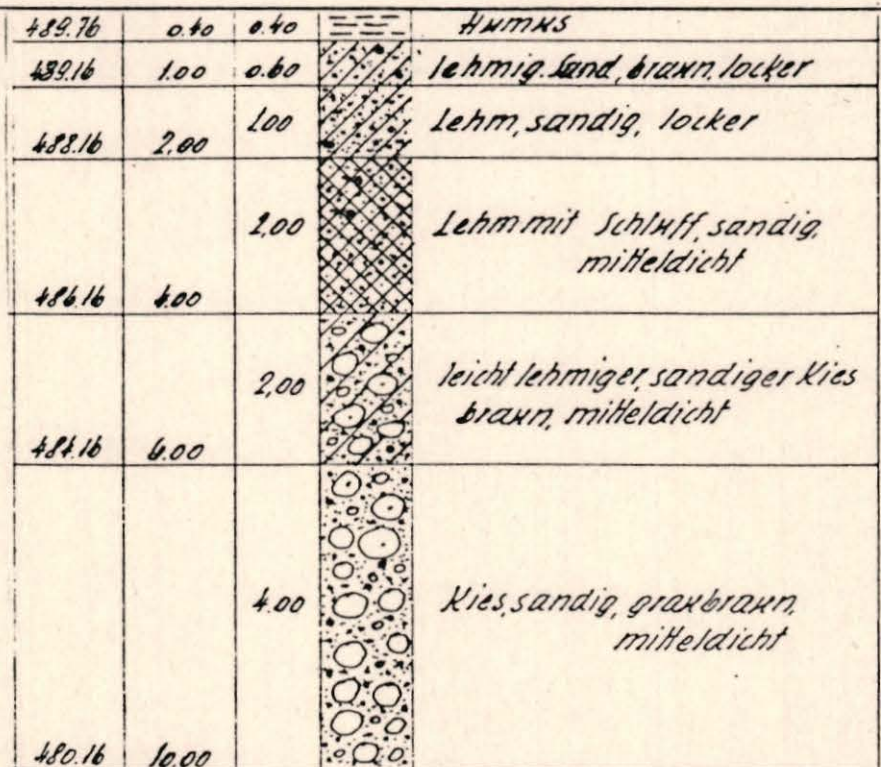 489.76 0.40 0.40 Humus
489.16 1.00 0.60 lehmig. Sand, braun, locker
1.00 Lehm, sandig, locker
488.16 2.00
2,00 Lehm mit Schluff, sandig,
mitteldicht
486.16 4.00
2,00 leicht lehmiger, sandiger Kies
braun, mitteldicht
484.16 6.00
4.00 Kies, sandig, graubraun,
mitteldicht
480.16 10.00